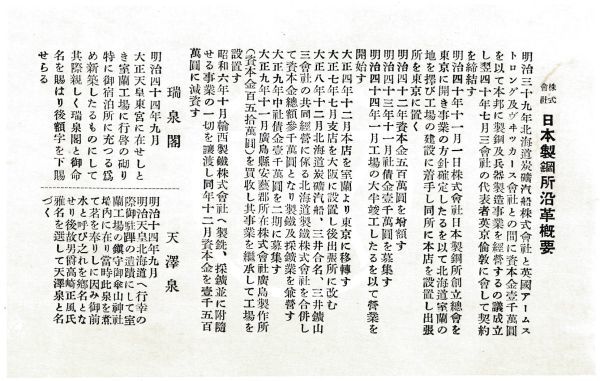 株式會社 日本製鋼所沿革概要
明治三十九年北海道炭礦汽船株式會社と英國アームス
トロング及ヴ井ッカース會社との間に資本金壹千萬圓
を以て本邦に製鋼及兵器製造事業を經營するの議成立
し翌四十年七月三會社の代表者英京倫敦に會して契約
を締結す
明治四十年十一月一日株式會社日本製鋼所創立總會を
東京に開き事業の方針確定したるを以て北海道室蘭の
地を擇び工場の建設に着手し同所に本店を設置し出張
所を東京に置く
明治四十二年資本金五百萬圓を增額す
明治四十三年十一月社債金壹千萬圓を募集す
明治四十四年一月工場の大半竣工したるを以て營業を
開始す
大正四年十二月本店を室蘭より東京に移轉す
大正七年七月支店を大阪に設置し後出張所に改む
大正八年十二月北海道炭礦汽船、三井合名、三井鑛山
三會社の共同經營に係る北海道製鐵株式會社を合併し
て資本金總額參千萬圓となり製鐵及採鑛業を兼營す
大正九年中社債金壹千萬圓を二期に募集す
大正九年十一月廣島縣安藝郡所在株式會社廣島製作所
(資本金百五拾萬圓)を買收し其事業を繼承して工場を
設置す
昭和六年十月輪西製鐵株式會社へ製銑、採鑛並に附隨
せる事業の一切を讓渡し同年十二月資本金を壹千五百
萬圓に減資す
瑞泉閣
明治四十四年九月
大正天皇東宮に在せしと
き室蘭工場に行啓の砌り
特に御宿泊所に充つる爲
め新築したるものにして
其際親しく瑞泉閣と御命
名を賜はり後額字を下賜
せらる
天澤泉
明治十四年九月
明治天皇北海道へ行幸の
際御駐蹕の遺蹟にして室
蘭工場の鎭守御傘山神社
塲内に在り當時此泉を煮
て茗を奉りしに因み御前
水と呼びこれを鄕名とな
せり後故男爵高崎正風氏
雅名を選して天澤泉と名
づく